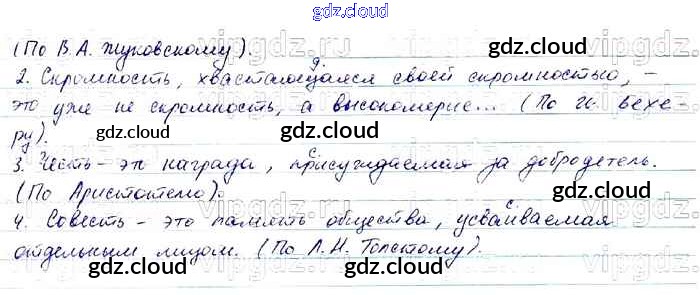 gdz.cloud
(По В. А. Жуковскому).
2. Скромность, хвастающаяся своей скромностью, –
это уже не скромность, а высокомерие... (По И. Бехе-
ру).
3. Честь – это награда, присуждаемая за добродетель.
(По Аристотелю).
4. Совесть – это память общества, усваиваемая
отдельным лицом. (По Л. Н. Толстому).